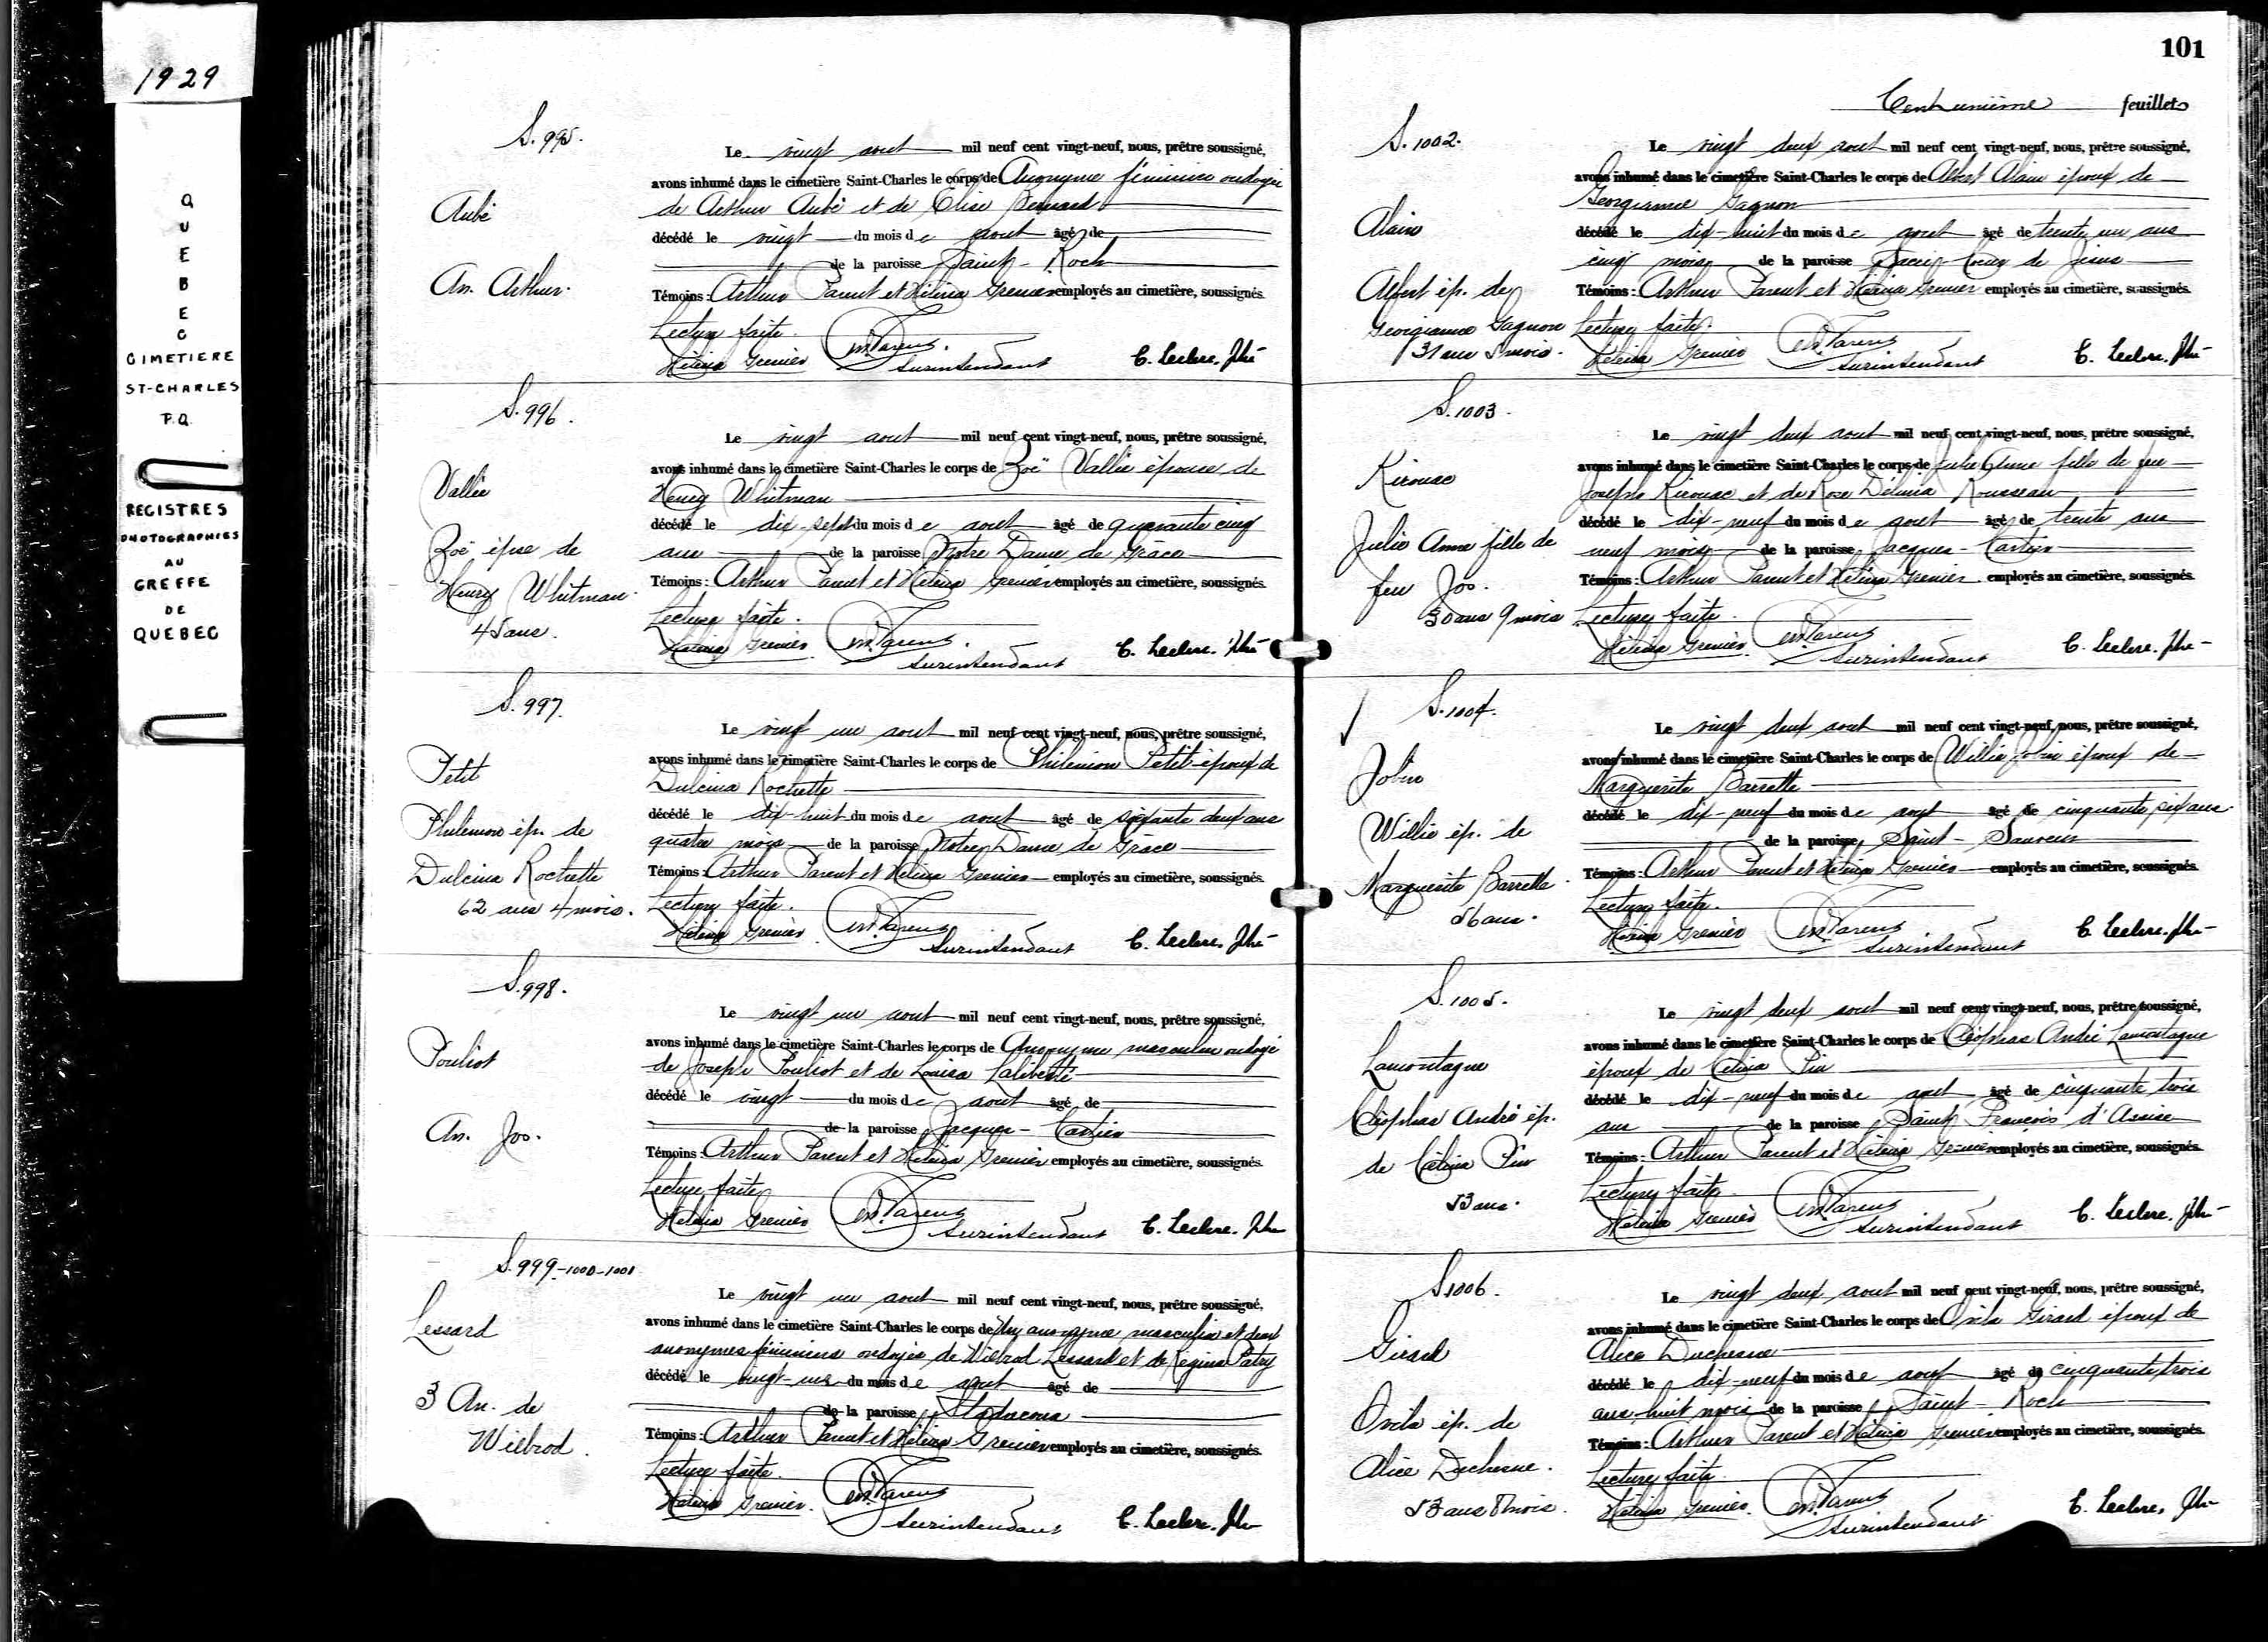 1929
QUEBEC
CIMETIERE
ST-CHARLES
P.Q.
REGISTRES
PHOTOGRAPHIES
AU
GREFFE
DE
QUEBEC
S. 995.
Aubé
An. Arthur.
Le vingt aout mil neuf cent vingt-neuf, nous, prêtre soussigné,
avons inhumé dans le cimetière Saint-Charles le corps de Anonyme féminin ondoyée
de Arthur Aubé et de Elise
décédé le vingt du mois de aout âgé de
de la paroisse Saint-Roch
Témoins: Arthur Parent et Hélina Grenier employés au cimetière, soussignés.
Lecture faite.
Hélina Grenier Parent
Surintendant C. Leclerc. Ptre
S. 996.
Vallée
Zoé épse de
Henry Whitman.
45 ans.
Le vingt aout mil neuf cent vingt-neuf, nous, prêtre soussigné,
avons inhumé dans le cimetière Saint-Charles le corps de Zoë Vallée épouse de
Henry Whitman
décédé le dix-sept du mois de aout âgé de quarante cinq
ans de la paroisse Notre Dame de Grâce
Témoins: Arthur Parent et Hélina Grenier employés au cimetière, soussignés.
Lecture faite.
Hélina Grenier Parent
Surintendant C. Leclerc. Ptre
S. 997.
Petit
Philémon ép. de
Dulcina Rochette
62 ans 4 mois.
Le vingt un aout mil neuf cent vingt-neuf, nous, prêtre soussigné,
avons inhumé dans le cimetière Saint-Charles le corps de Philémon Petit époux de
Dulcina Rochette
décédé le dix-huit du mois de aout âgé de soixante deux ans
quatre mois de la paroisse Notre Dame de Grâce
Témoins: Arthur Parent et Hélina Grenier employés au cimetière, soussignés.
Lecture faite.
Hélina Grenier Parent
Surintendant C. Leclerc. Ptre
S. 998.
Pouliot
An. Jos.
Le vingt un aout mil neuf cent vingt-neuf, nous, prêtre soussigné,
avons inhumé dans le cimetière Saint-Charles le corps de Anonyme masculin ondoyé
de Joseph Pouliot et de Louisa Laliberté
décédé le vingt du mois de aout âgé de
de la paroisse Jacques-Cartier
Témoins: Arthur Parent et Hélina Grenier employés au cimetière, soussignés.
Lecture faite
Hélina Grenier Parent
Surintendant C. Leclerc. Ptre
S. 999-1000-1001
Lessard
3 An. de
Wilbrod.
Le vingt un aout mil neuf cent vingt-neuf, nous, prêtre soussigné,
avons inhumé dans le cimetière Saint-Charles le corps de Un anonyme masculin et deux
anonymes féminins ondoyés de Wilbrod Lessard et de Regina Patry
décédé le vingt-un du mois de aout âgé de
de la paroisse Stadacona
Témoins: Arthur Parent et Hélina Grenier employés au cimetière, soussignés.
Lecture faite.
Hélina Grenier. Parent
Surintendant C. Leclerc. Ptre
101
Centunième feuillets
S. 1002.
Alain
Albert ép. de
Georgianna Gagnon
31 ans 5 mois.
Le vingt deux aout mil neuf cent vingt-neuf, nous, prêtre soussigné,
avons inhumé dans le cimetière Saint-Charles le corps de Albert Alain époux de
Georgianna Gagnon
décédé le dix-huit du mois de aout âgé de trente un ans
cinq mois de la paroisse Sacré-Coeur de Jésus
Témoins: Arthur Parent et Hélina Grenier employés au cimetière, soussignés.
Lecture faite.
Hélina Grenier Parent
Surintendant C. Leclerc. Ptre
S. 1003.
Kirouac
Julie Anna fille de
feu Jos.
30 ans 9 mois
Le vingt deux aout mil neuf cent vingt-neuf, nous, prêtre soussigné,
avons inhumé dans le cimetière Saint-Charles le corps de Julie Anna fille de feu
Joseph Kirouac et de Rose Délima Rousseau
décédé le dix-neuf du mois de aout âgé de trente ans
neuf mois de la paroisse Jacques-Cartier
Témoins: Arthur Parent et Hélina Grenier employés au cimetière, soussignés.
Lecture faite.
Hélina Grenier. Parent
Surintendant C. Leclerc. Ptre
S. 1004.
Jobin
Willie ép. de
Marguerite Barrette.
56 ans.
Le vingt deux aout mil neuf cent vingt-neuf, nous, prêtre soussigné,
avons inhumé dans le cimetière Saint-Charles le corps de Willie Jobin époux de
Marguerite Barrette
décédé le dix-neuf du mois de aout âgé de cinquante six ans
de la paroisse Saint-Sauveur
Témoins: Arthur Parent et Hélina Grenier employés au cimetière, soussignés.
Lecture faite.
Hélina Grenier Parent
Surintendant C. Leclerc. Ptre
S. 1005.
Lamontagne
Cléophas André ép.
de Célina Pin
53 ans.
Le vingt deux aout mil neuf cent vingt-neuf, nous, prêtre soussigné,
avons inhumé dans le cimetière Saint-Charles le corps de Cléophas André Lamontagne
époux de Célina Pin
décédé le dix-neuf du mois de aout âgé de cinquante trois
ans de la paroisse Saint François d'Assise
Témoins: Arthur Parent et Hélina Grenier employés au cimetière, soussignés.
Lecture faite.
Hélina Grenier Parent
Surintendant C. Leclerc. Ptre
S. 1006.
Girard
Ovila ép. de
Alice Duchesne.
53 ans 8 mois.
Le vingt deux aout mil neuf cent vingt-neuf, nous, prêtre soussigné,
avons inhumé dans le cimetière Saint-Charles le corps de Ovila Girard époux de
Alice Duchesne
décédé le dix-neuf du mois de aout âgé de cinquante trois
ans huit mois de la paroisse Saint-Roch
Témoins: Arthur Parent et Hélina Grenier employés au cimetière, soussignés.
Lecture faite.
Hélina Grenier. Parent
Surintendant C. Leclerc. Ptre